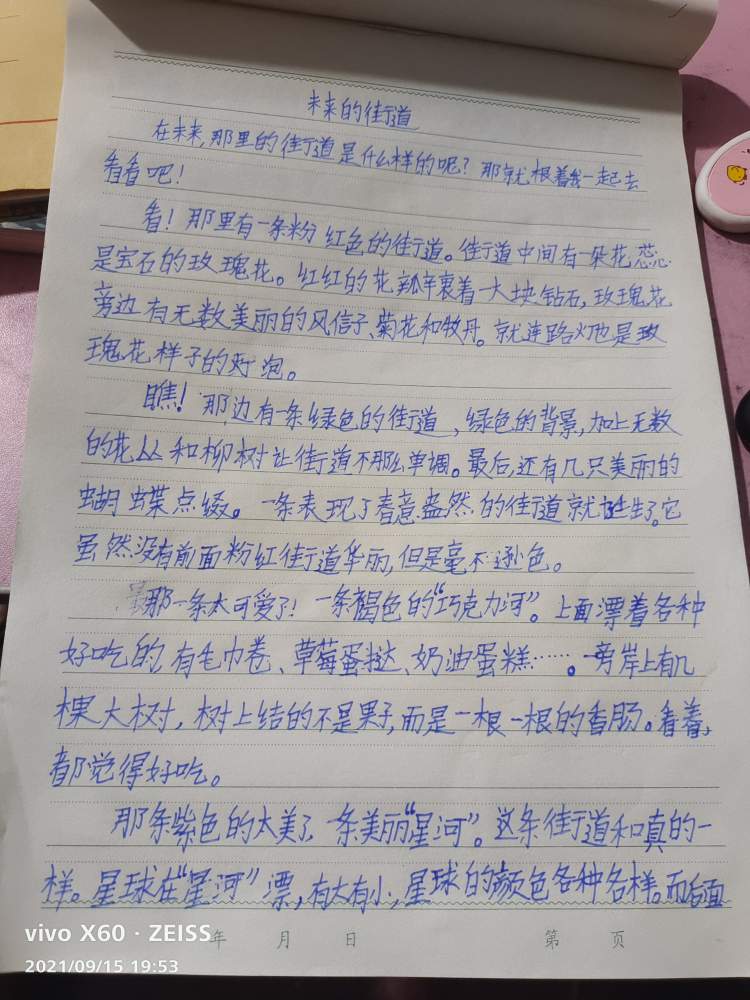 未来的街道
在未来,那里的街道是什么样的呢?那就根着我一起去
看看吧!
看!那里有一条粉红色的街道。街道中间有一朵花蕊
是宝石的玫瑰花。红红的花瓣裹着一大块钻石,玫瑰花
旁边有无数美丽的风信子、菊花和牧丹。就连路灯也是玫
瑰花样子的灯泡。
瞧!那边有一条绿色的街道,绿色的背景,加上无数
的花丛和柳树让街道不那么单调。最后,还有几只美丽的
蝴蝶点缀。一条表现了春意盎然的街道就诞生了。它
虽然没有前面粉红街道华丽,但是毫不逊色。
那一条太可爱了!一条褐色的“巧克力河”。上面漂着各种
好吃的,有毛巾卷、草莓蛋挞、奶油蛋糕……。旁岸上有几
棵大树,树上结的不是果子,而是一根一根的香肠。看着,
都觉得好吃。
那条紫色的太美了,一条美丽“星河”。这条街道和真的一
样。星球在“星河”漂,有大有小,星球的颜色各种各样。而后面
年 月 日 第 页
vivo X60 · ZEISS
2021/09/15 19:53